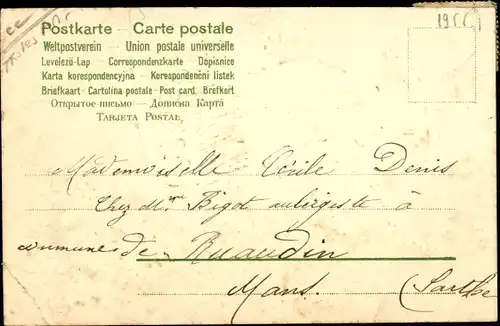 Postkarte – Carte postale
Weltpostverein – Union postale universelle
Levelező-Lap – Correspondenzkarte – Dopisnice
Karta korespondencyjna – Korespondenční lístek
Briefkaart – Cartolina postale – Post card – Brefkort
Открытое письмо – Дописна Карта
Tarjeta Postal,
Mademoiselle Cécile Denis
Chez Mme Bigot aubergiste à
commune de Ruaudin
Mans. (Sarthe